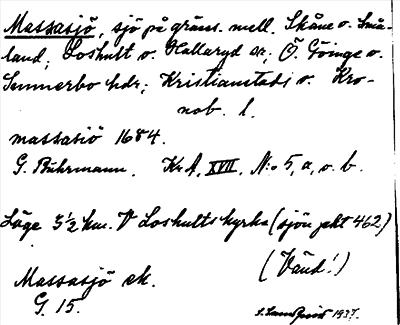 Massasjö, sjö på gräns. mell. Skåne o. Små-
land; Loshult o. Hallaryd sr; Ö. Göinge o.
Sunnerbo hdr; Kristianstads o. Kro-
nob. l.
massasiö 1684.
G. Buhrmann. Kr. A. XVII, N:o 5, a, o. b.
Läge 3½ km. V Loshults kyrka (sjön pkt 462)
(Vänd!)
Massasjö ek.
G. 15.
1937.